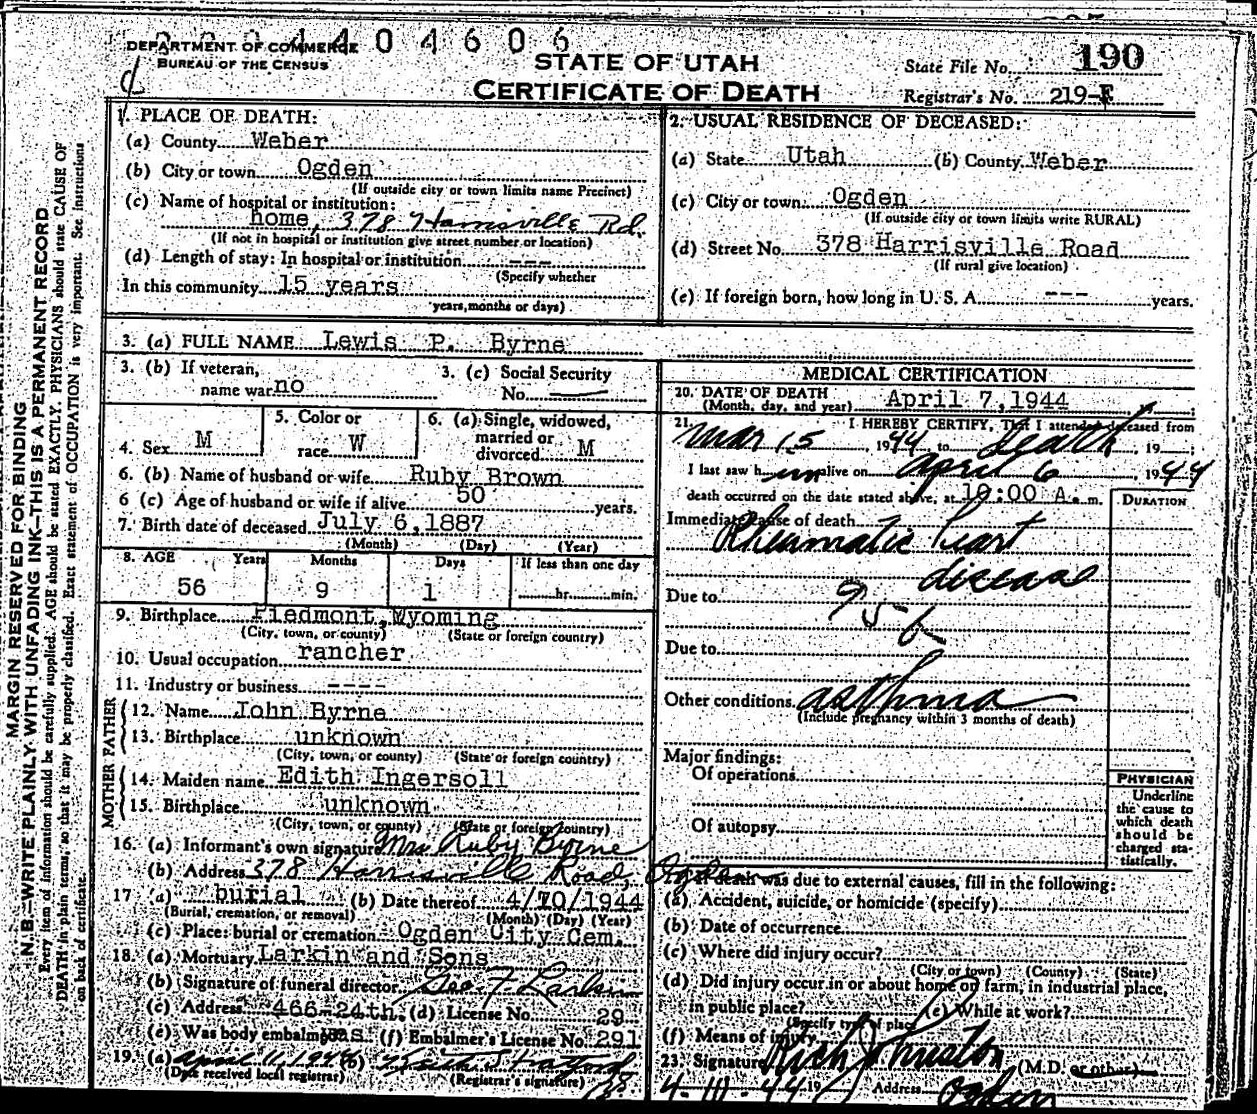 DEPARTMENT OF COMMERCE
BUREAU OF THE CENSUS
4404606
STATE OF UTAH
CERTIFICATE OF DEATH
State File No. 190
Registrar's No. 219-F
MARGIN RESERVED FOR BINDING
N. B.—WRITE PLAINLY WITH UNFADING INK—THIS IS A PERMANENT RECORD
Every item of information should be carefully supplied. AGE should be stated EXACTLY. PHYSICIANS should state CAUSE OF
DEATH in plain terms, so that it may be properly classified. Exact statement of OCCUPATION is very important. See instructions
on back of certificate.
1. PLACE OF DEATH:
(a) County Weber
(b) City or town Ogden
(If outside city or town limits name Precinct)
(c) Name of hospital or institution: ---
home, 378 Harrisville Rd.
(If not in hospital or institution give street number or location)
(d) Length of stay: In hospital or institution ---
(Specify whether
In this community 15 years
years, months or days)
2. USUAL RESIDENCE OF DECEASED:
(a) State Utah (b) County Weber
(c) City or town Ogden
(If outside city or town limits write RURAL)
(d) Street No. 378 Harrisville Road
(If rural give location)
(e) If foreign born, how long in U. S. A. --- years.
3. (a) FULL NAME Lewis P. Byrne
3. (b) If veteran,
name war no
3. (c) Social Security
No.
4. Sex M
5. Color or
race W
6. (a) Single, widowed,
married or
divorced M
6. (b) Name of husband or wife Ruby Brown
6 (c) Age of husband or wife if alive 50 years.
7. Birth date of deceased July 6, 1887
(Month) (Day) (Year)
8. AGE Years Months Days If less than one day
56 9 1 hr. min.
9. Birthplace Piedmont, Wyoming
(City, town, or county) (State or foreign country)
10. Usual occupation rancher
11. Industry or business ----
FATHER
12. Name John Byrne
13. Birthplace unknown
(City, town, or county) (State or foreign country)
MOTHER
14. Maiden name Edith Ingersoll
15. Birthplace unknown
(City, town, or county) (State or foreign country)
16. (a) Informant's own signature Mrs Ruby Byrne
(b) Address 378 Harrisville Road, Ogden
17 (a) burial (b) Date thereof 4/10/1944
(Burial, cremation, or removal) (Month) (Day) (Year)
(c) Place: burial or cremation Ogden City Cem.
18. (a) Mortuary Larkin and Sons
(b) Signature of funeral director Geo. F. Larkin
(c) Address 466-24th. (d) License No. 29
(e) Was body embalmed yes (f) Embalmer's License No. 291
19. (a) April 11, 1944 (b)
(Date received local registrar) (Registrar's signature)
MEDICAL CERTIFICATION
20. DATE OF DEATH
(Month, day, and year) April 7, 1944
21. I HEREBY CERTIFY, That I attended deceased from
Mar 15 1944 to death, 19
I last saw him alive on April 6 1944
death occurred on the date stated above, at 10:00 A. m.
DURATION
Immediate cause of death
Rheumatic heart
disease
Due to
95-b
Due to
Other conditions asthma
(Include pregnancy within 3 months of death)
Major findings:
Of operations
Of autopsy
PHYSICIAN
Underline
the cause to
which death
should be
charged sta-
tistically.
22. If death was due to external causes, fill in the following:
(a) Accident, suicide, or homicide (specify)
(b) Date of occurrence
(c) Where did injury occur?
(City or town) (County) (State)
(d) Did injury occur in or about home, on farm, in industrial place,
in public place? (e) While at work?
(Specify type of place)
(f) Means of injury
23. Signature Rich Johnston (M.D. or other)
4-111-44 19 Address Ogden